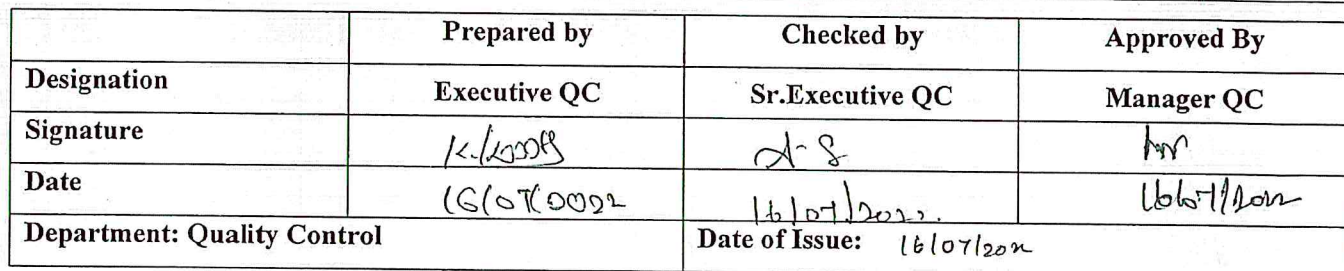 Prepared by Checked by Approved By
Designation Executive QC Sr.Executive QC Manager QC
Signature
Date 16/07/2022 16/07/2022. 16/07/2022
Department: Quality Control Date of Issue: 16/07/2022